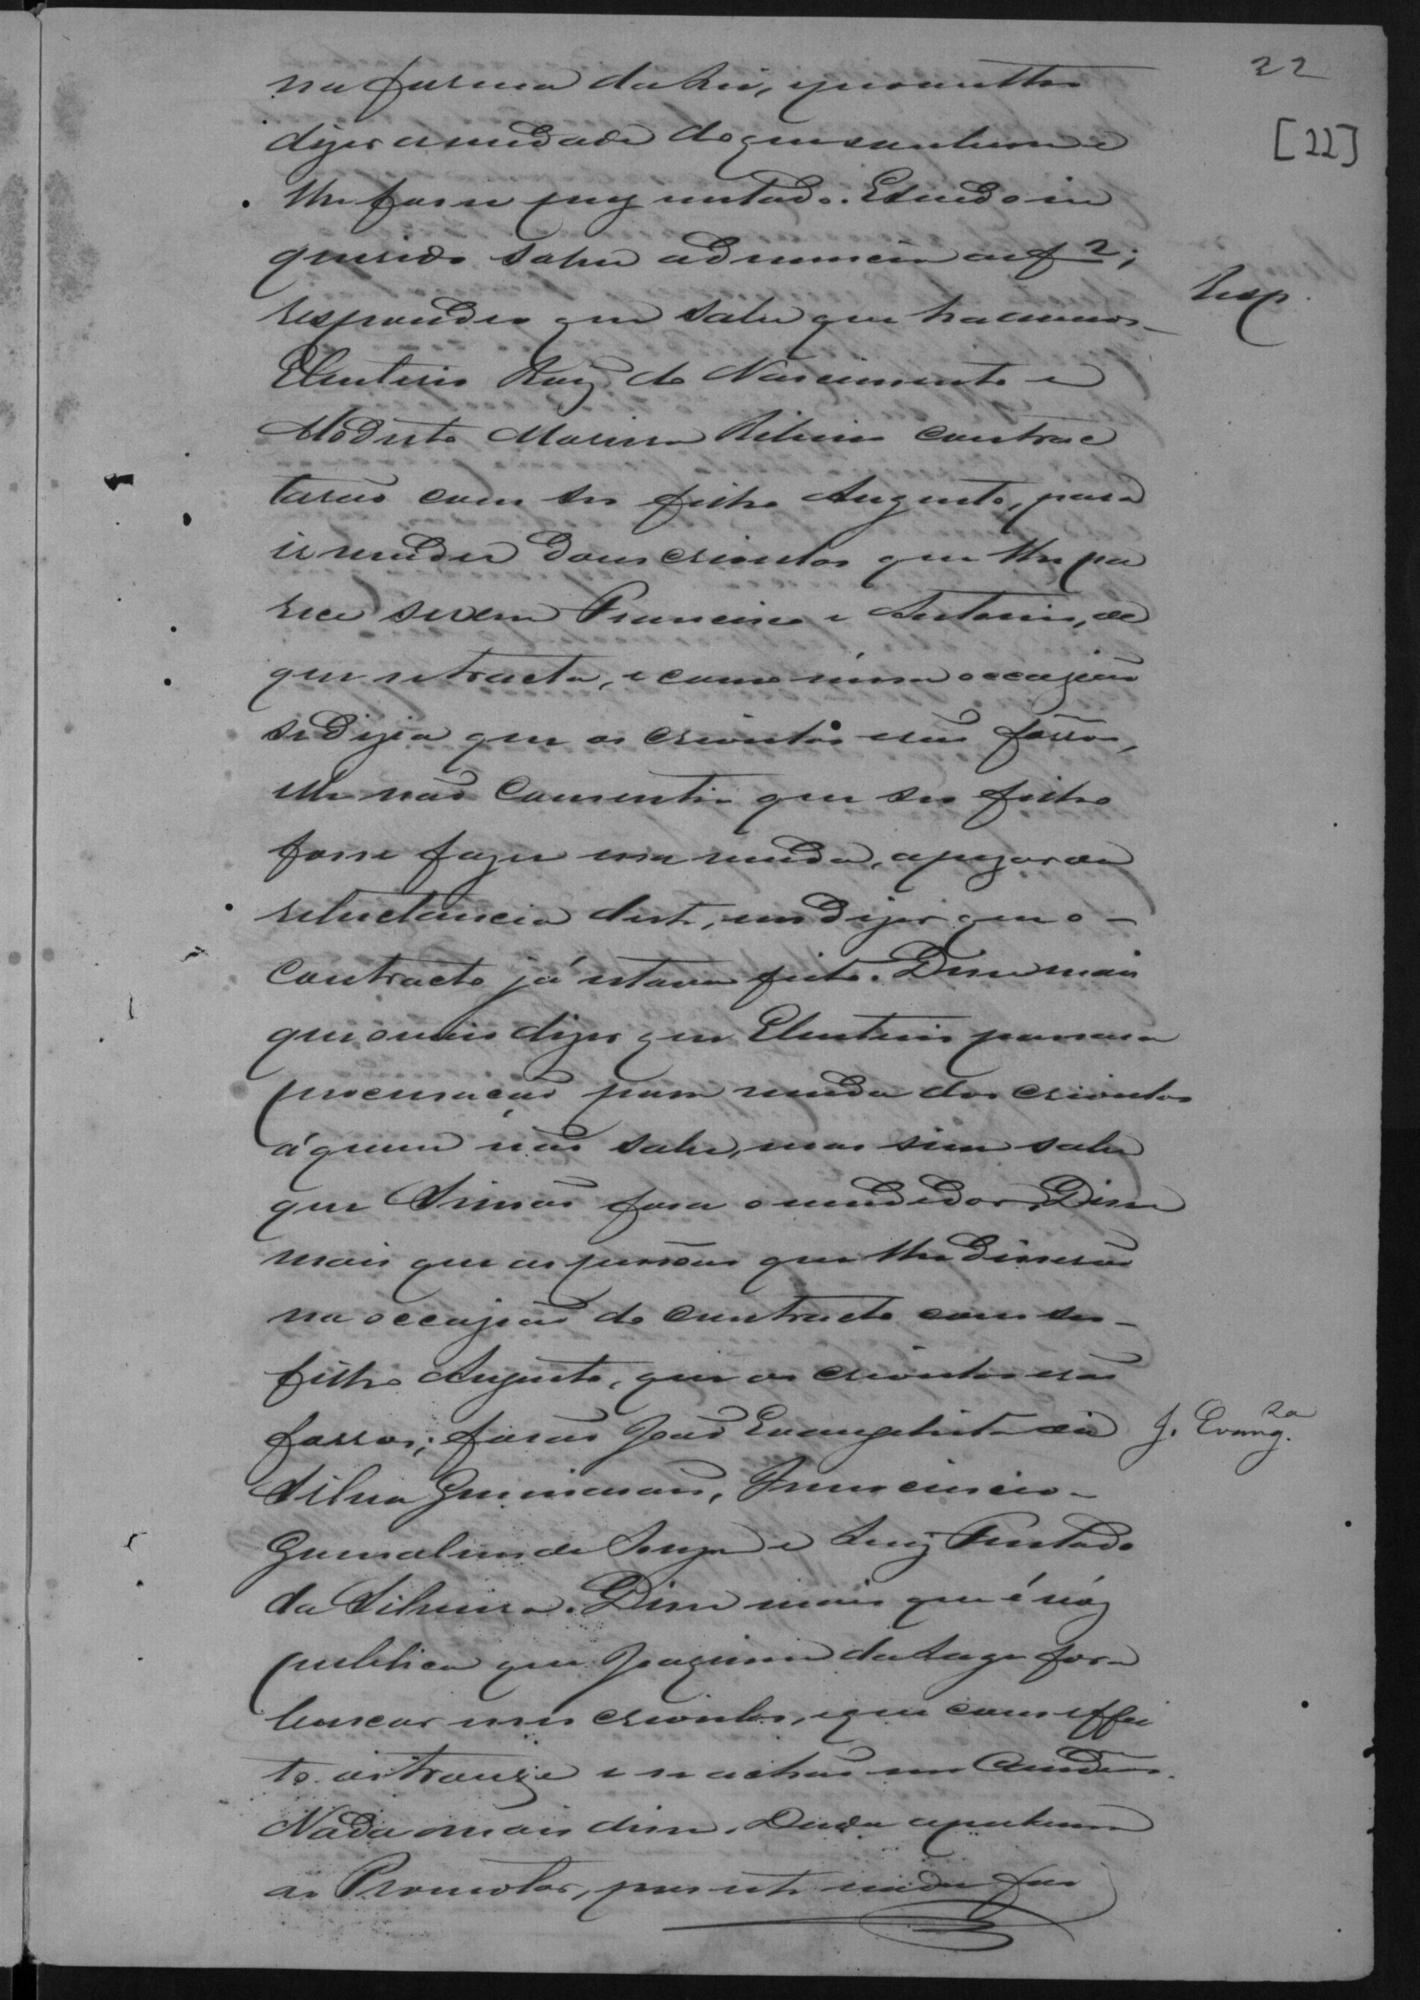 22
[22]
na forma da Lei, e prometteo
dizer a verdade do que soubesse e
lhe fosse preguntado. E sendo in
querido sobre a denuncia a f 2;
Resp.
respondeo que sabe que ha annos
Eleuterio Luiz do Nascimento e
Modesto Moreira Ribeiro contrac
tarão com seo filho Augusto, para
ir vender dous crioulos que lhe pa
rece serem Francisco e Antonio, de
que se tracta, e como n'essa occazião
se dizia que os crioulos erão fôrros,
elle não consentio que seo filho
fosse fazer essa venda, apezar da
reluctancia deste, em dizer que o
contracto já estava feito. Disse mais
que ouvio dizer que Eleuterio passara
procuração para venda dos crioulos
á quem não sabe, mas sim sabe
que Simão fora o vendedor. Disse
mais que as pessôas que lhe disserão
na occazião do contracto com seo
filho Augusto, que os crioulos erão
forros; forão João Evangelista da
J. Evang.ta
Silva Guimarães, Francisco
Gonsalves de Souza e Luiz Furtado
da Silveira. Disse mais que é vóz
publica que Joaquim da Lage fora
buscar esses crioulos, e que com effei
to os trouxe e se achão em Caudêas.
Nada mais disse. Dada a palavra
ao Promotor, por este nada foi